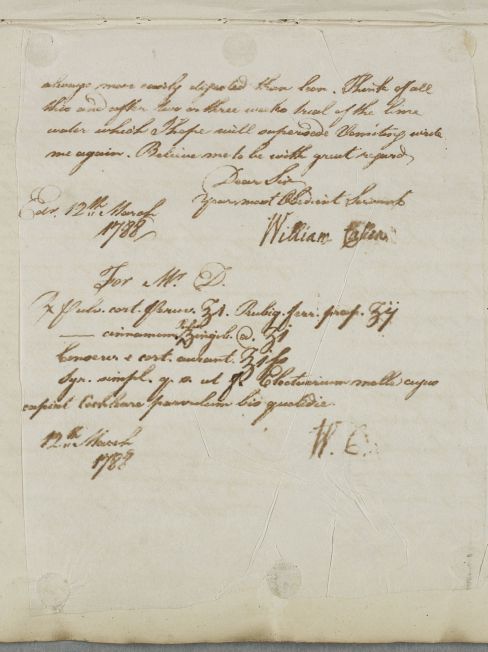 always more easily digested than lean. Think of all
this and after two or three weeks trial of the lime
water which I hope will supersede Vomiting write
me again. Believe me to be with great regard
Dear Sir
Your most Obedient Servant
Edr. 12th March
1788
William Cullen
For Mr. D.
℞ Pulv. cort. Peruv. ℥i. Rubig. ferr. ppt. ʒij
—— cinnamom Zingib. a. ʒi
Conserv. e cort. aurant. ℥iſs
Syr. simpl. q. s. ut f. Electuarium molle cujus
capiat Cochleare parvulum bis quotidie.
12th March
1788
W. C.